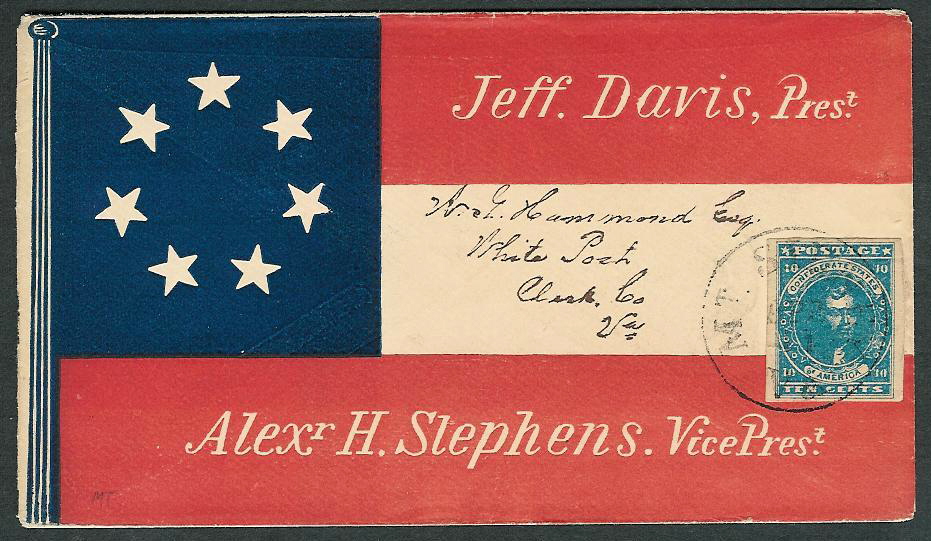 Jeff. Davis, Prest.
Hammond Esq.
White Post
Clark. Co
Va
MT. S
POSTAGE
10 10
CONFEDERATE STATES
OF AMERICA
10 10
TEN CENTS
Alexr H. Stephens. Vice Prest.
MT